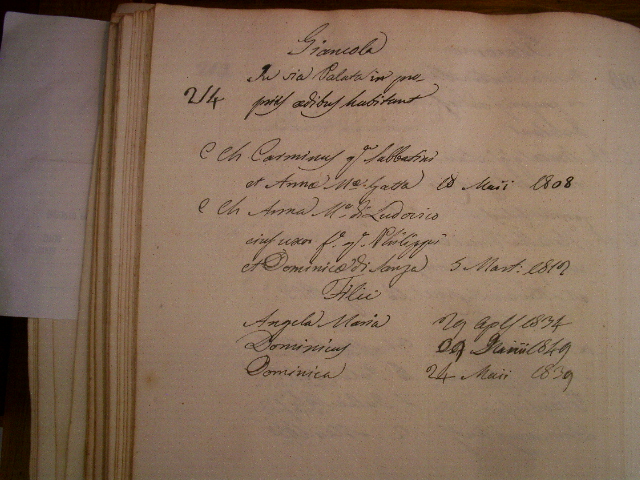 Giancola
In via Palata in pro
214
priis ædibus habitant
C Ch Carminus qm Sabbatini
et Annæ Mæ Gatta 18 Maii 1808
C Ch Anna Ma di Ludovico
ejus uxor f. qm Philippi
et Dominicæ di Sanza 5 Mart: 1812
Filii
Angela Maria 29 Aplis 1834
Dominicus 1849
Dominica 24 Maii 1839